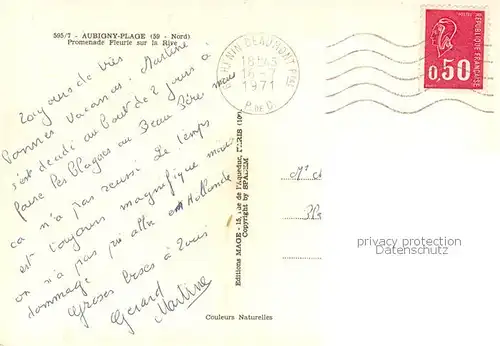 595/7 - AUBIGNY-PLAGE (59 - Nord)
Promenade Fleurie sur la Rive
de très
bonnes vacances. Martine
s'est décidé au bout de 2 jours à
faire des blagues au Beau Père mais
ca n'a pas reussi. Le temps
est toujours magnifique mais
on n'a pas pu aller en Hollande
dommage
Grosses bises à tous
Gerard
Martine
Editions MAGE - 15, rue de l'Aqueduc, PARIS (10e)
Copyright by SPADEM
Couleurs Naturelles
HENIN BEAUMONT PPAL
18H45
16-7
1971
P. DE C.
REPUBLIQUE FRANCAISE
0,50
privacy protection
Datenschutz